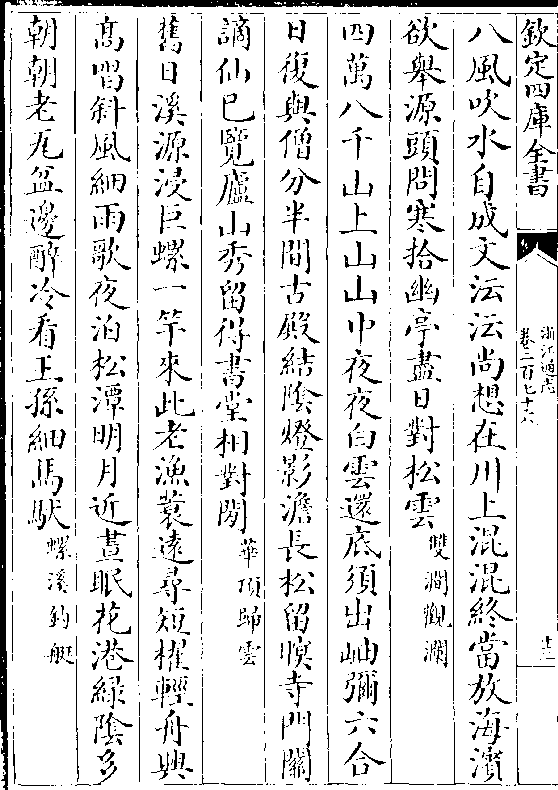 欽定四庫全書
浙江通志
卷二百七十六
八風吹水自成文沄沄尚想在川上混混終當放海濱
欲舉源頭問寒拾幽亭盡日對松雲雙澗觀瀾
四萬八千山上山山巾夜夜白雲還底須出岫彌六合
日復與僧分半間古殿結陰燈影澹長松留暝寺門關
謫仙已覽廬山秀留得書堂相對閒華頂歸雲
舊日溪源浸巨螺一竿來此老漁蓑遠尋短櫂輕舟興
髙唱斜風細雨歌夜泊松潭明月近晝眠花港綠陰多
朝朝老瓦盆邊醉冷看王孫細馬馱螺溪釣艇